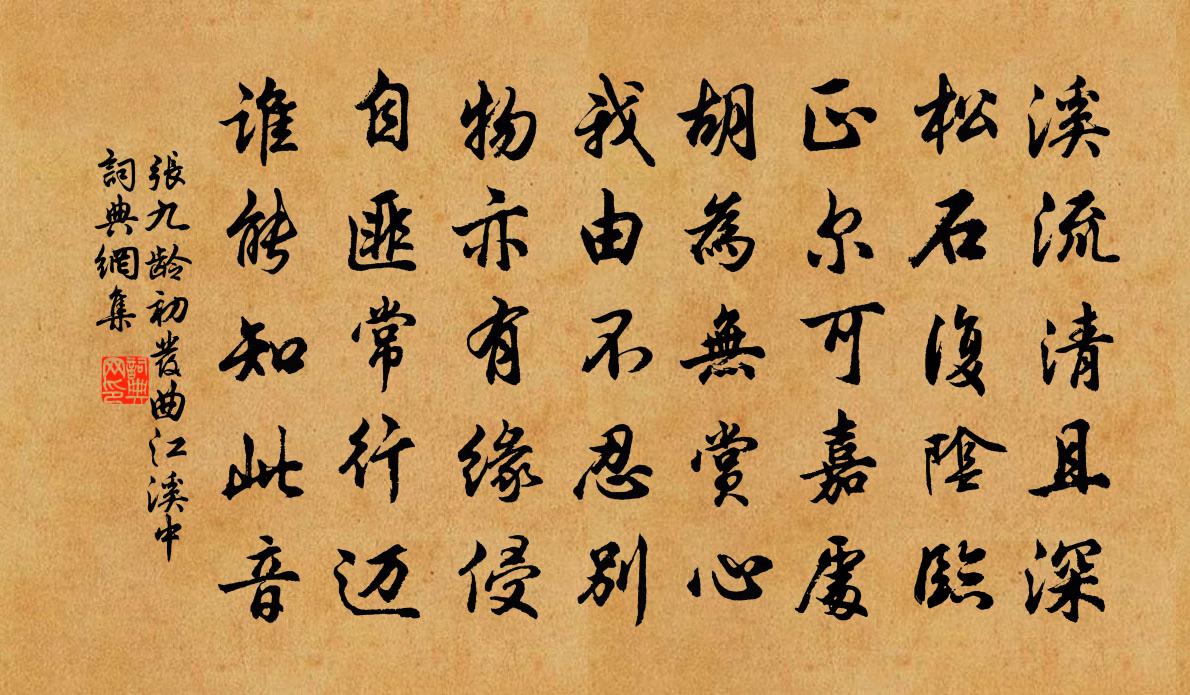 溪流清且深
松石復陰臨
正尔可嘉處
胡為無賞心
我由不忍別
物亦有緣侵
自匪常行迈
誰能知此音
張九齡初發曲江溪中
詞典網集